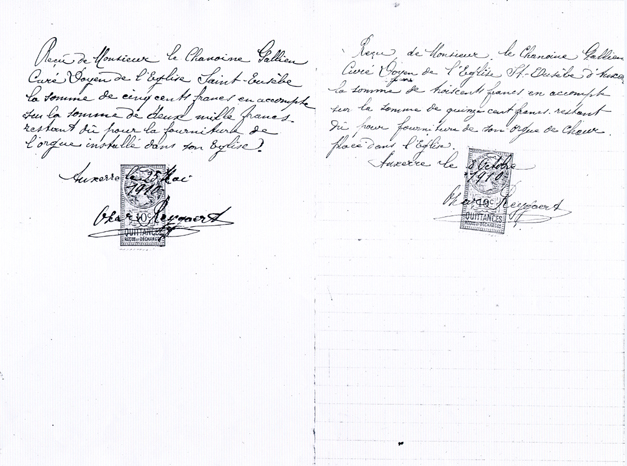 Reçu de Monsieur le Chanoine Gallien
Curé Doyen de l'Eglise Saint-Eusèbe
la somme de cinq cents francs en accompte
sur la somme de deux mille francs.
restant dû pour la fourniture de
l'orgue installé dans son Eglise.
Auxerre le 25 Mai
1910
10c
QUITTANCES
REÇUS ET DÉCHARGES
Reçu de Monsieur le Chanoine Gallien
Curé Doyen de l'Eglise St-Eusèbe d'
la somme de trois cent francs en accompt
sur la somme de quinze cent francs restant
dû pour fourniture de son orgue de Chœur
placé dans l'Eglise.
Auxerre le 8 Octobre
1910
10c
QUITTANCES
REÇUS ET DÉCHARGES